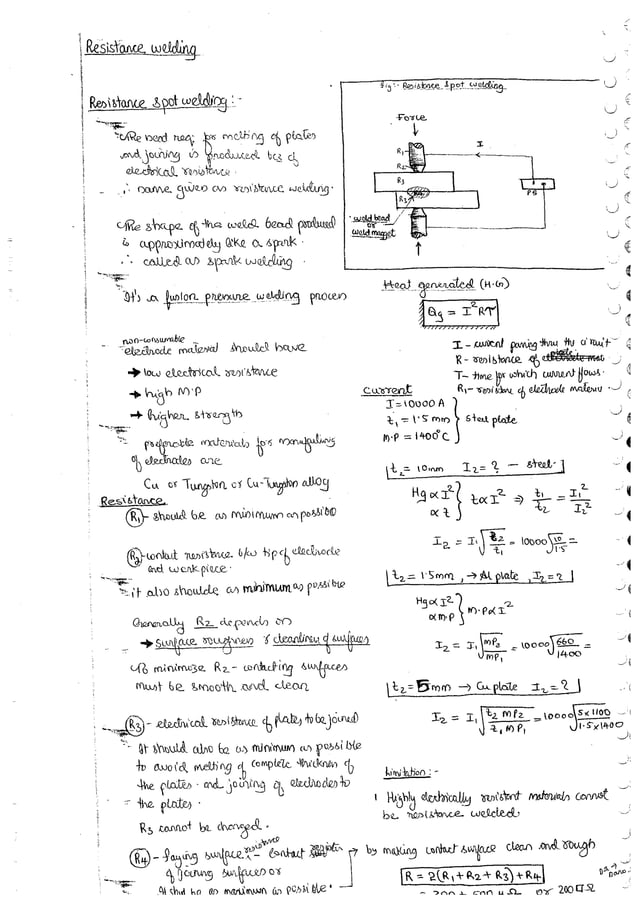 Resistance welding
Resistance spot welding :-
The heat req. for melting of plates
and joining is produced bcs of
electrical resistance.
∴ name given as resistance welding.
The shape of the weld bead produced
is approximately like a spark.
∴ called as spark welding
It's a fusion pressure welding process
non-consumable
electrode material should have
→ low electrical resistance
→ high M.P
→ higher strength
preferable materials for manufacturing
of electrodes are
Cu or Tungsten or Cu-Tungsten alloy
Resistance
R1 - should be as minimum as possible
R2 - contact resistance b/w tip of electrode
and workpiece.
it also shoulde as minimum as possible
Generally R2 depends on
→ surface roughness & cleanliness of surfaces
To minimose R2 - contacting surfaces
must be smooth and clean
R3 - electrical resistance of plates to be joined
It should also be as minimum as possible
to avoid melting of complete thickness of
the plates and joining of electrodes to
the plates.
R3 cannot be changed.
R4 - faying surface resistance :- contact
of joining surfaces or
It shd be as maximum as possible.
Fig:- Resistance spot welding
Force
I
R1
R2
R3
R3
PS
weld bead
or
weld nugget
Heat generated (H.G)
Qg = I²RT
I - current passing thru the circuit
R - resistance of plate
T - time for which current flows.
R1 - resistance of electrode material
current
I = 10000 A
t1 = 1.5 mm
M.P = 1400°C
steel plate
t2 = 10mm I2 = ? - steel.
Hg ∝ I²
∝ t
t ∝ I² ⇒ t1/t2 = I1²/I2²
I2 = I1 √(t2/t1) = 10000 √(10/1.5) =
t2 = 1.5mm, → Al plate, I2 = ?
Hg ∝ I²
∝ M.P
M.P ∝ I²
I2 = I1 √(MP2/MP1) = 10000 √(660/1400) =
t2 = 5mm → Cu plate I2 = ?
I2 = I1 √(t2 MP2/t1 MP1) = 10000 √(5×1100/1.5×1400)
Limitation :-
1 Highly electrically resistant materials cannot
be resistance welded.
→ by making contact surface clean and rough
R = 2(R1 + R2 + R3) + R4